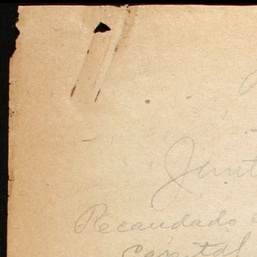 Junt
Recaudado
Capital